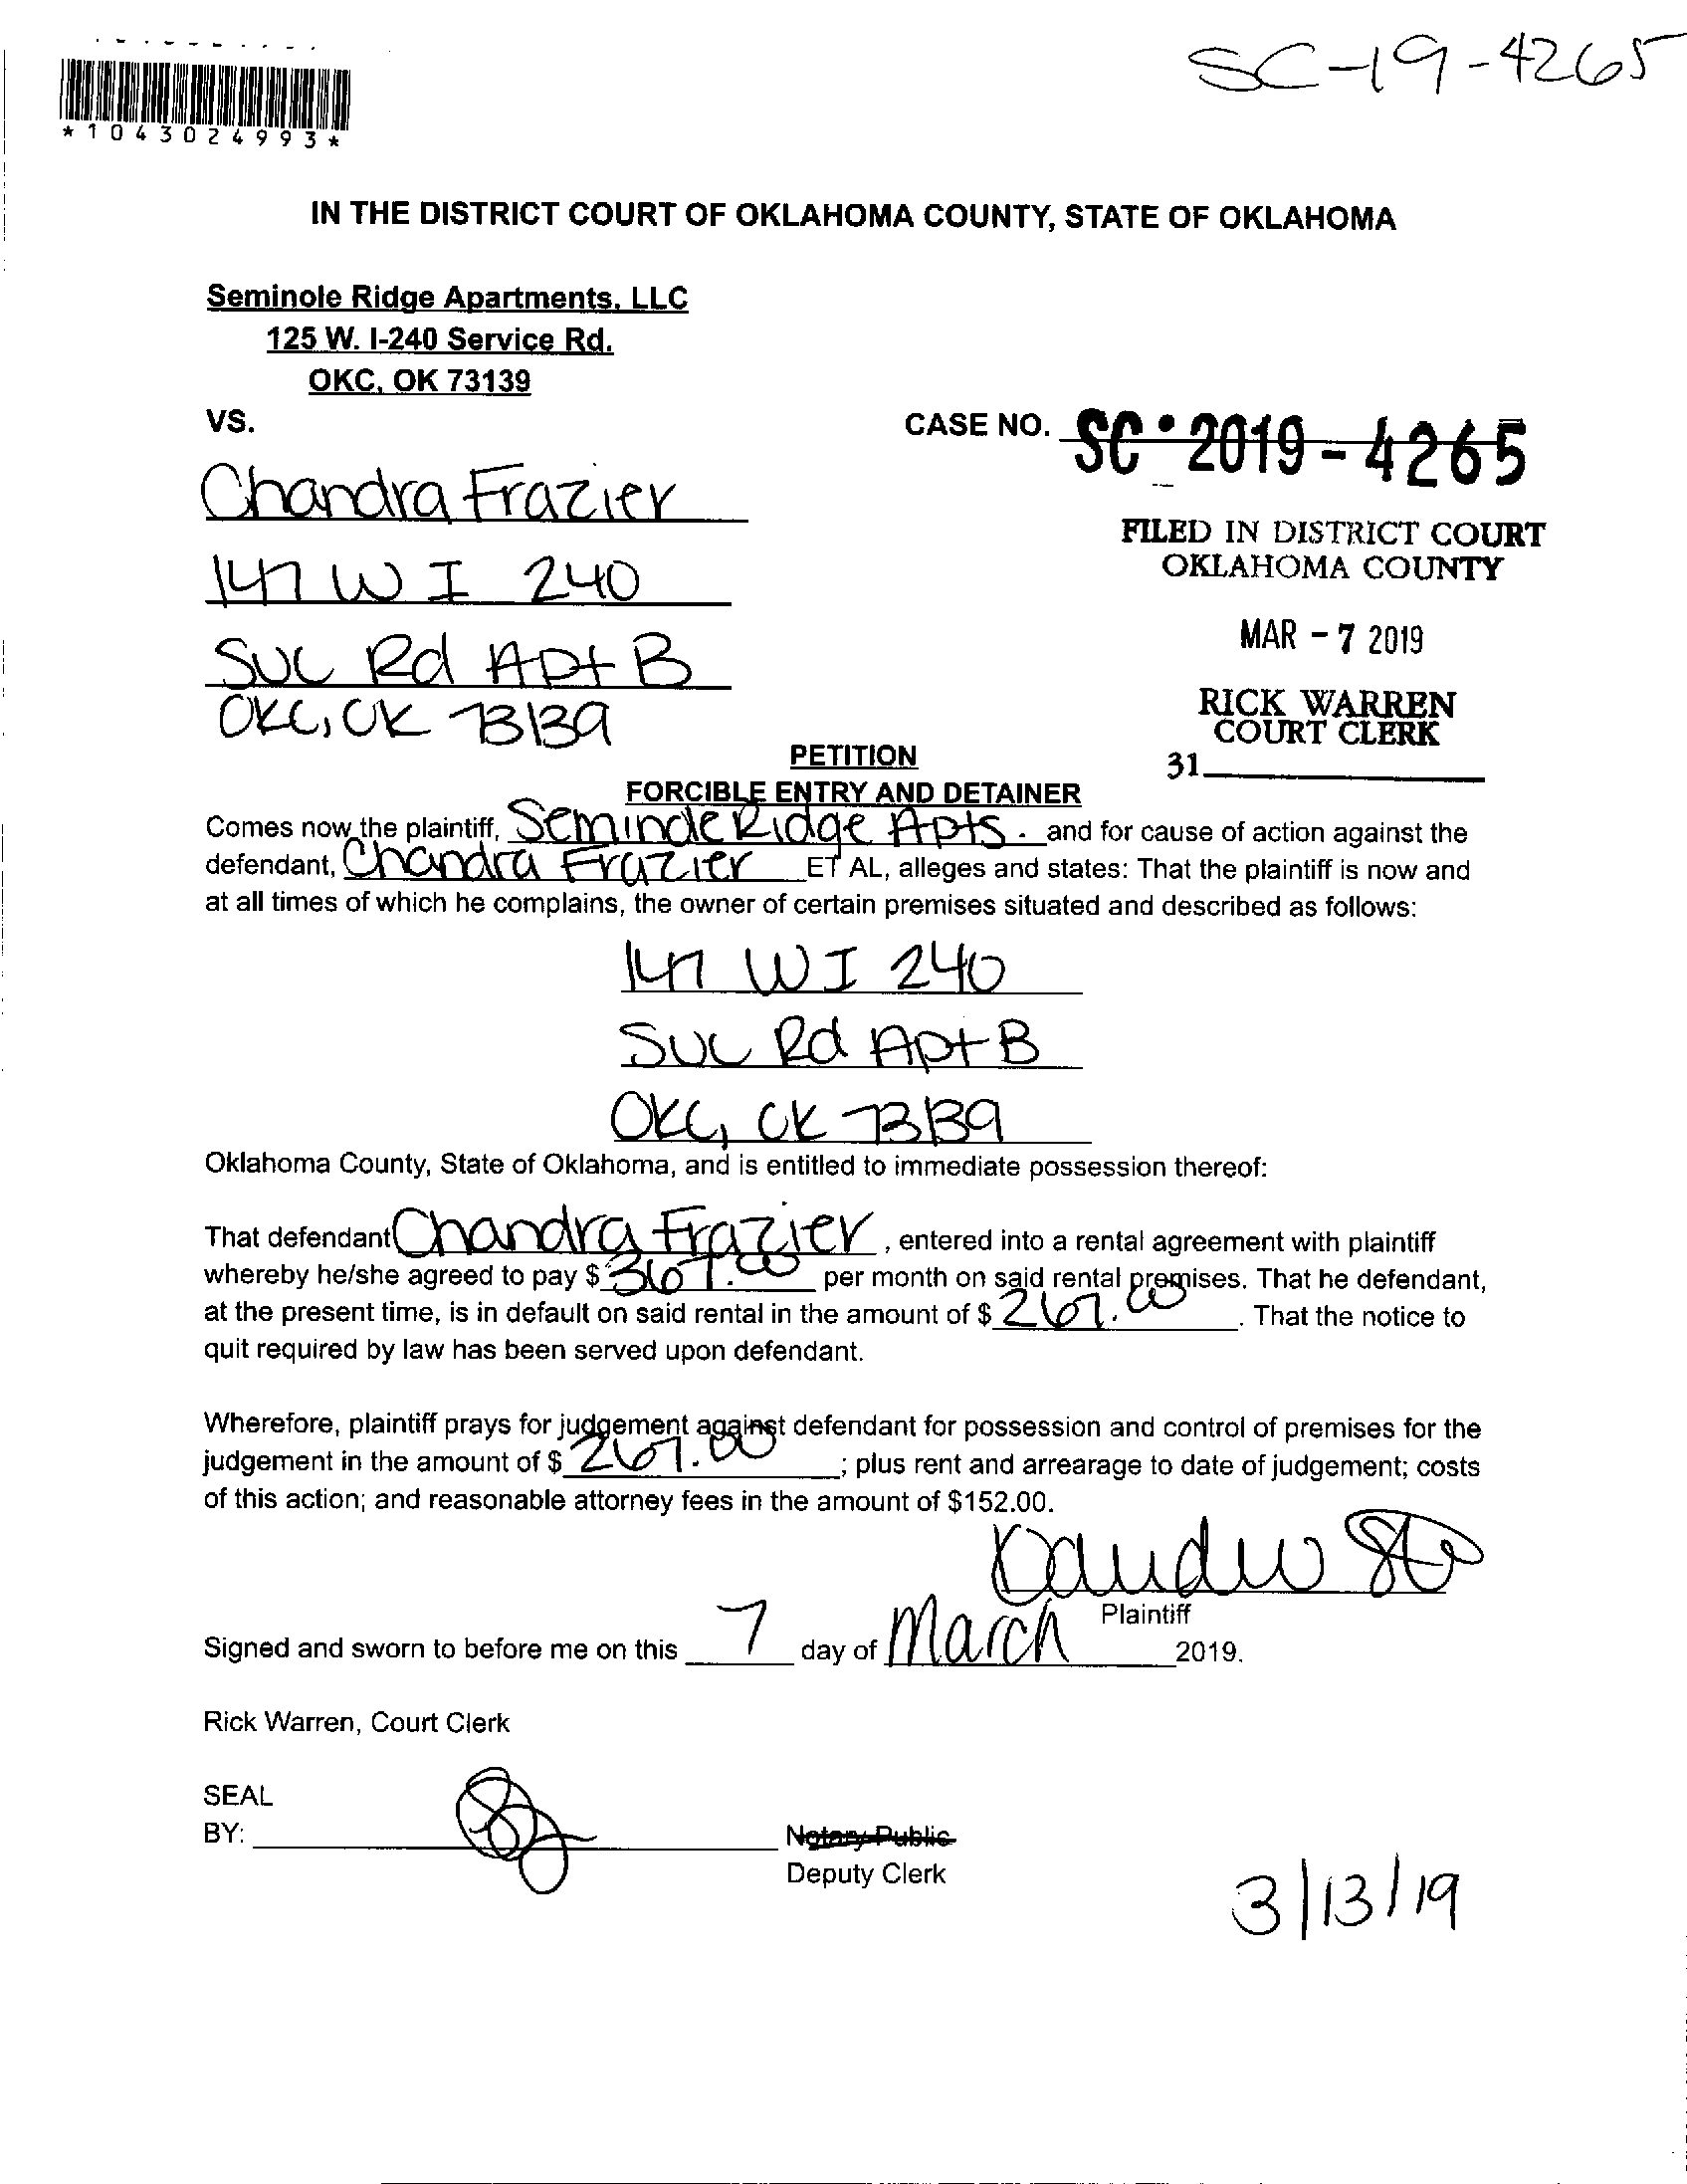 SC-19-4265
*1043024993*
IN THE DISTRICT COURT OF OKLAHOMA COUNTY, STATE OF OKLAHOMA
Seminole Ridge Apartments, LLC
125 W. I-240 Service Rd.
OKC, OK 73139
VS.
CASE NO. SC • 2019 - 4265
Chandra Frazier
FILED IN DISTRICT COURT
OKLAHOMA COUNTY
147 W I 240
MAR - 7 2019
SVC Rd Apt B
OKC, OK 73139
RICK WARREN
COURT CLERK
31
PETITION
FORCIBLE ENTRY AND DETAINER
Comes now the plaintiff, Seminole Ridge Apts. and for cause of action against the
defendant, Chandra Frazier ET AL, alleges and states: That the plaintiff is now and
at all times of which he complains, the owner of certain premises situated and described as follows:
147 W I 240
SVC Rd Apt B
OKC, OK 73139
Oklahoma County, State of Oklahoma, and is entitled to immediate possession thereof:
That defendant Chandra Frazier, entered into a rental agreement with plaintiff
whereby he/she agreed to pay $ 367.00 per month on said rental premises. That he defendant,
at the present time, is in default on said rental in the amount of $ 267.00. That the notice to
quit required by law has been served upon defendant.
Wherefore, plaintiff prays for judgement against defendant for possession and control of premises for the
judgement in the amount of $ 267.00; plus rent and arrearage to date of judgement; costs
of this action; and reasonable attorney fees in the amount of $152.00.
Plaintiff
Signed and sworn to before me on this 7 day of March 2019.
Rick Warren, Court Clerk
SEAL
BY:
Notary Public
Deputy Clerk
3/13/19